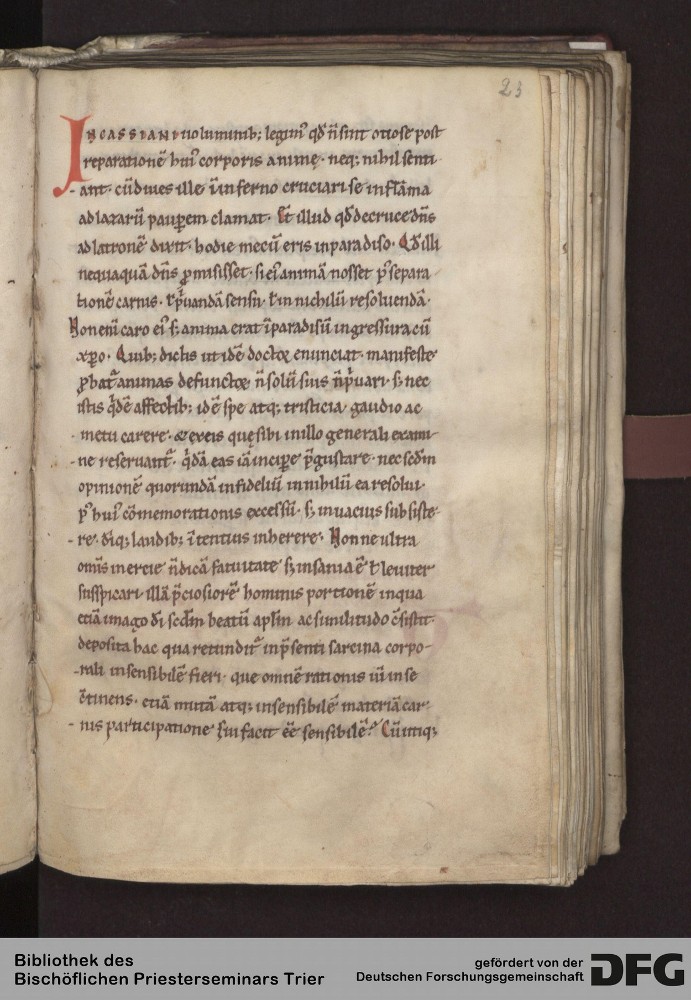 23
IN CASSIANI voluminib; legim᷒ qd̄ n̄ sint otiose post
reparationē hui᷒ corporis animę. neq; nihil senti-
- ant. cū dives ille ī inferno cruciari se in flāma
ad lazarū paupem clamat. Et illud qd̄ de cruce dn̄s
ad latronē dixit. hodie mecū eris in paradiso. Qd̄ illi
nequaquā dn̄s ꝓmisisset. si ei᷒ animā nosset p᷒ separa-
tionē carnis. ł pͥvandā sensu. ł in nichilū resoluendā.
Non eni caro ei᷒ s; anima erat ī paradisū ingressura cū
xp̄o. Quib; dictis ut idē doctoꝝ enunciat. manifeste
ꝓbat᷑ animas defunctoꝝ n̄ solū suis n̄ pͥvari. s; nec
istis qͥdē affectib; id ē spe atq; tristicia. gaudio ac
- metu carere. & ex eis quę sibi in illo generali exami-
- ne reservant᷑. qͥdā eas iā incipe p̄gustare. nec scdm
opinionē quorundā infideliū in nihilū ea resolui.
p᷒ hui᷒ cōmemorationis excessū. s; in vacius subsiste-
- re. dīq; laudib; ītentius inherere. Nonne ultra
omīs inercie n̄ dicā fatuitate s; insania ē ł leviter
suspicari. illā p̄ciosiorē hominis portionē in qua
etiā imago dī scdm beatū apłm ac similitudo c̄sistit.
deposita hac qua retundit᷑ in p̄senti sarcina corpo-
- rali insensibilē fieri. que omnē rationis uī in se
c̄tinens. etiā mutā atq; insensibilē materiā car-
- nis participatione sui facit ēē sensibilē. Cū utiq;
Bibliothek des
Bischöflichen Priesterseminars Trier
gefördert von der
Deutschen Forschungsgemeinschaft
DFG